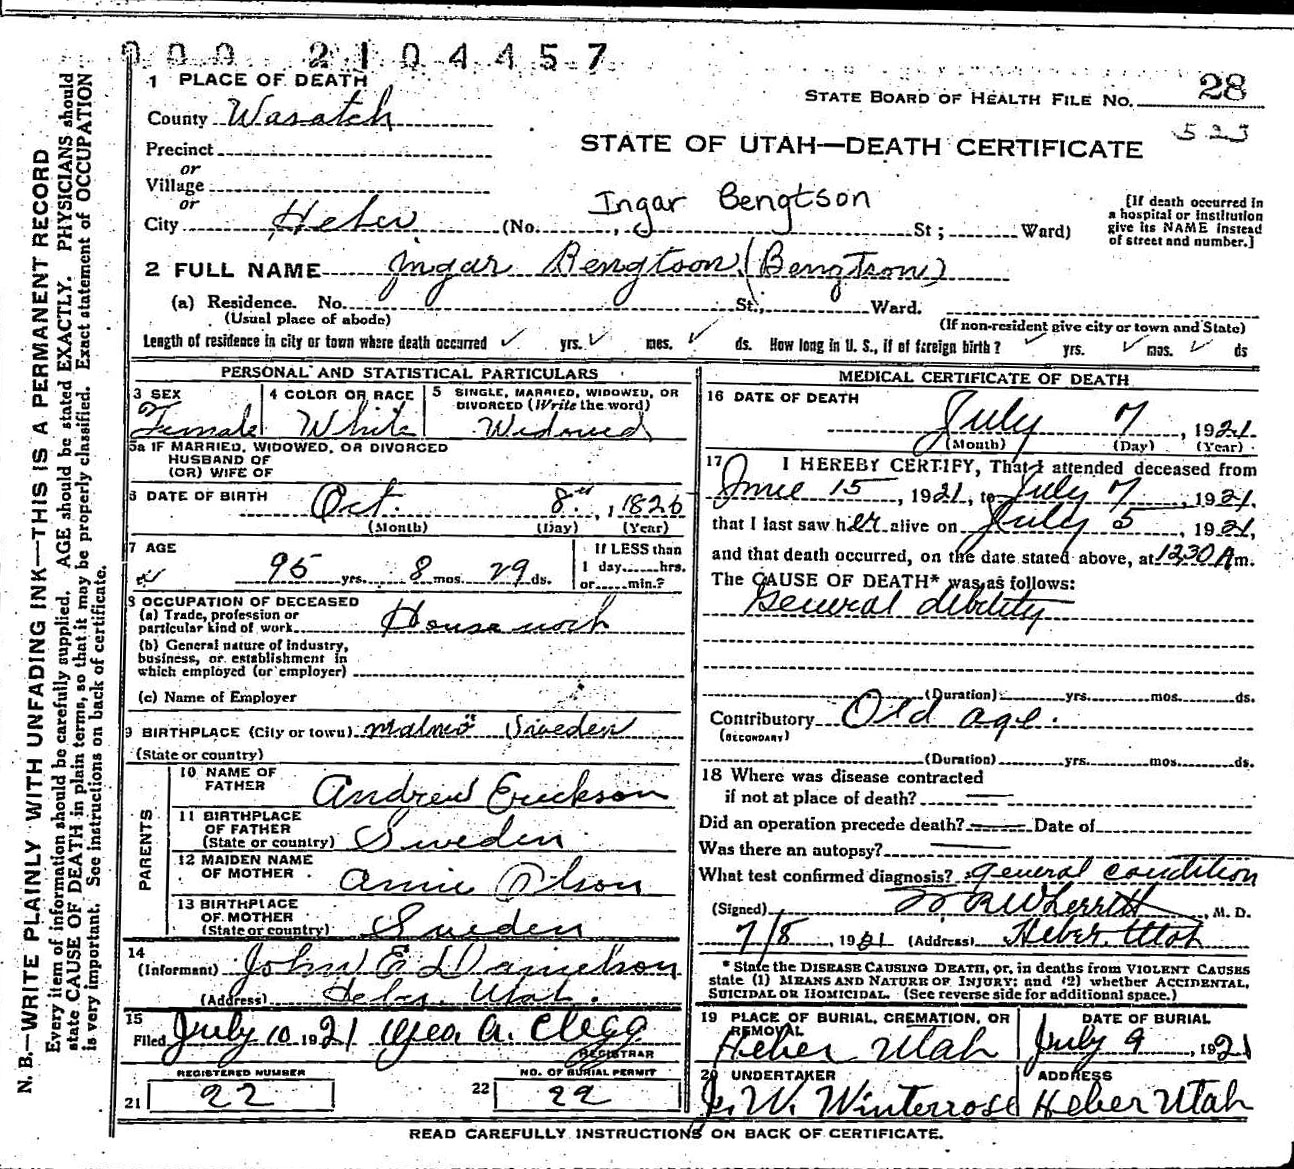 000 2104457
1 PLACE OF DEATH
STATE BOARD OF HEALTH FILE NO. 28
County Wasatch
523
STATE OF UTAH—DEATH CERTIFICATE
Precinct
or
Village
or
City Heber (No. , St; Ward)
Ingar Bengtson
[If death occurred in
a hospital or institution
give its NAME instead
of street and number.]
2 FULL NAME Ingar Bengtson (Bengtson)
(a) Residence. No. St., Ward.
(Usual place of abode)
(If non-resident give city or town and State)
Length of residence in city or town where death occurred ✓ yrs. ✓ mos. ✓ ds. How long in U. S., if of foreign birth? ✓ yrs. ✓ mos. ✓ ds
PERSONAL AND STATISTICAL PARTICULARS
3 SEX
Female
4 COLOR OR RACE
White
5 SINGLE, MARRIED, WIDOWED, OR
DIVORCED (Write the word)
Widowed
5a IF MARRIED, WIDOWED, OR DIVORCED
HUSBAND OF
(OR) WIFE OF
6 DATE OF BIRTH Oct. 8th, 1826
(Month) (Day) (Year)
7 AGE
95 yrs. 8 mos. 29 ds.
If LESS than
1 day......hrs.
or......min.?
8 OCCUPATION OF DECEASED
(a) Trade, profession or
particular kind of work Housework
(b) General nature of industry,
business, or establishment in
which employed (or employer)
(c) Name of Employer
9 BIRTHPLACE (City or town) Malmö Sweden
(State or country)
PARENTS
10 NAME OF
FATHER Andrew Erickson
11 BIRTHPLACE
OF FATHER
(State or country) Sweden
12 MAIDEN NAME
OF MOTHER Annie Olson
13 BIRTHPLACE
OF MOTHER
(State or country) Sweden
14
(Informant) John E Danielson
(Address) Heber, Utah.
15
Filed July 10 1921 Geo. A. Clegg
REGISTRAR
REGISTERED NUMBER
21 22
NO. OF BURIAL PERMIT
22 22
MEDICAL CERTIFICATE OF DEATH
16 DATE OF DEATH
July 7, 1921
(Month) (Day) (Year)
17 I HEREBY CERTIFY, That I attended deceased from
June 15, 1921, to July 7, 1921.
that I last saw her alive on July 5, 1921,
and that death occurred, on the date stated above, at 1230 A m.
The CAUSE OF DEATH* was as follows:
General debility
(Duration) yrs. mos. ds.
Contributory Old age.
(SECONDARY)
(Duration) yrs. mos. ds.
18 Where was disease contracted
if not at place of death? —
Did an operation precede death? — Date of
Was there an autopsy? —
What test confirmed diagnosis? general condition
(Signed) Wherritt, M. D.
7/8, 1921 (Address) Heber, Utah
* State the DISEASE CAUSING DEATH, or, in deaths from VIOLENT CAUSES
state (1) MEANS AND NATURE OF INJURY; and (2) whether ACCIDENTAL,
SUICIDAL OR HOMICIDAL. (See reverse side for additional space.)
19 PLACE OF BURIAL, CREMATION, OR
REMOVAL
Heber Utah
DATE OF BURIAL
July 9, 1921
20 UNDERTAKER
J. W. Winterrose
ADDRESS
Heber Utah
READ CAREFULLY INSTRUCTIONS ON BACK OF CERTIFICATE.
N. B.—WRITE PLAINLY WITH UNFADING INK—THIS IS A PERMANENT RECORD
Every item of information should be carefully supplied. AGE should be stated EXACTLY. PHYSICIANS should
state CAUSE OF DEATH in plain terms, so that it may be properly classified. Exact statement of OCCUPATION
is very important. See instructions on back of certificate.